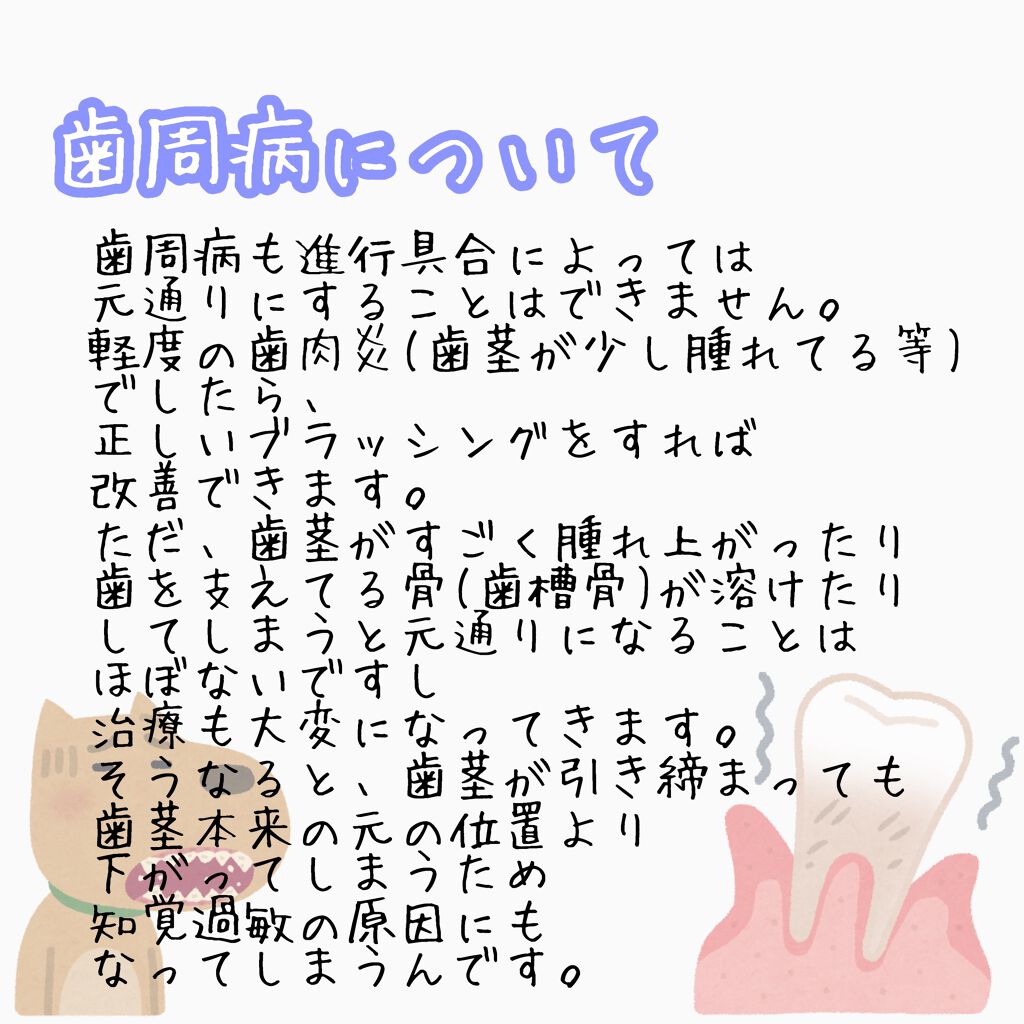 歯周病について
歯周病も進行具合によっては
元通りにすることはできません。
軽度の歯肉炎(歯茎が少し腫れてる等)
でしたら、
正しいブラッシングをすれば
改善できます。
ただ、歯茎がすごく腫れ上がったり
歯を支えてる骨(歯槽骨)が溶けたり
してしまうと元通りになることは
ほぼないですし
治療も大変になってきます。
そうなると、歯茎が引き締まっても
歯茎本来の元の位置より
下がってしまうため
知覚過敏の原因にも
なってしまうんです。